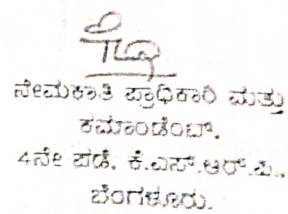 ನೇಮಕಾತಿ ಪ್ರಾಧಿಕಾರಿ ಮತ್ತು
ಕಮಾಂಡೆಂಟ್,
4ನೇ ಪಡೆ, ಕೆ.ಎಸ್.ಆರ್.ಪಿ.,
ಬೆಂಗಳೂರು.